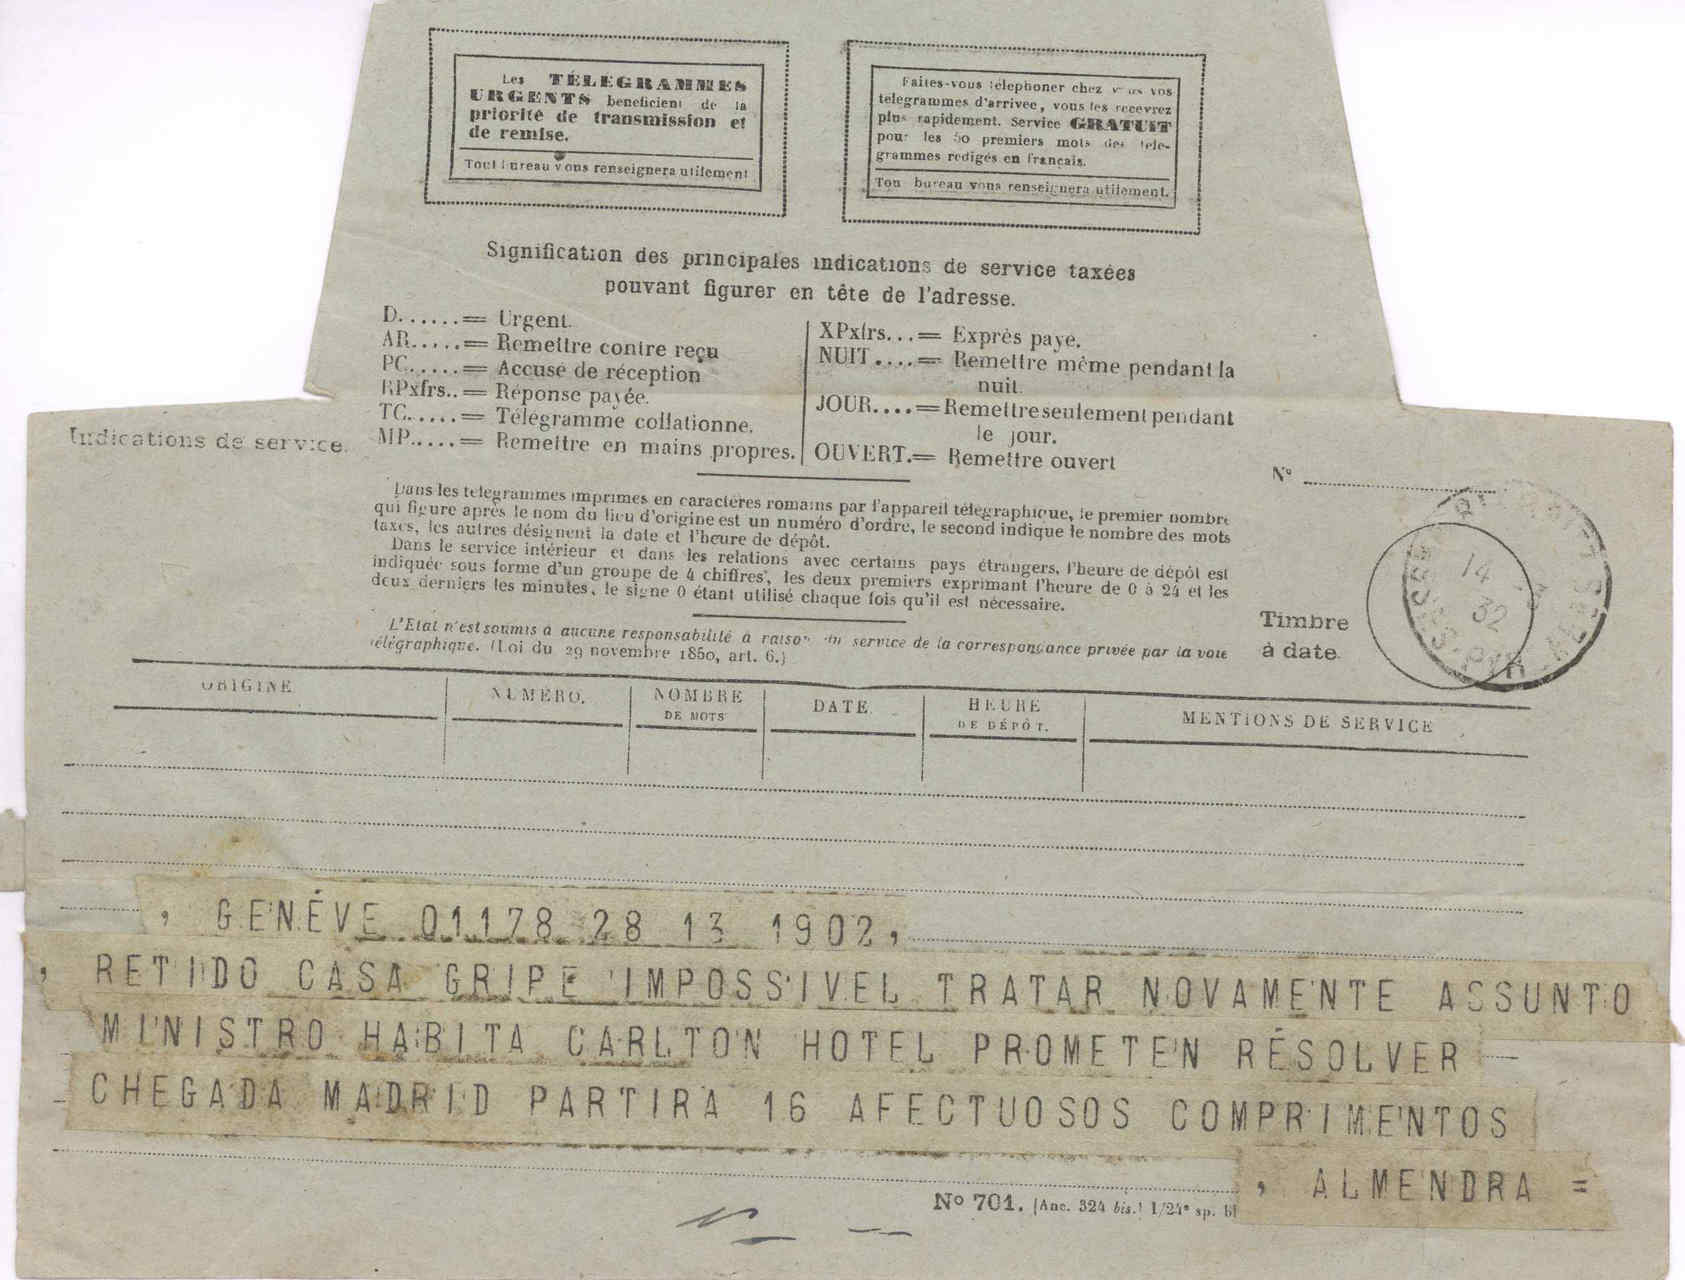 Les TÉLÉGRAMMES
URGENTS beneficient de la
priorité de transmission et
de remise.
Tout bureau vous renseignera utilement
Faites-vous téléphoner chez vos
telegrammes d'arrivee, vous les recevrez
plus rapidement. Service GRATUIT
pour les 50 premiers mots des télé-
grammes redigés en francais.
Tou bureau vous renseignera utilement.
Signification des principales indications de service taxées
pouvant figurer en tête de l'adresse.
D......= Urgent.
AR.....= Remettre contre reçu
PC.....= Accusé de réception
RPxfrs..= Réponse payée.
TC.....= Télégramme collationne.
MP.....= Remettre en mains propres.
XPxfrs...= Exprès paye.
NUIT....= Remettre même pendant la
nuit.
JOUR....= Remettre seulement pendant
le jour.
OUVERT.= Remettre ouvert
Indications de service.
N°
Dans les telegrammes imprimes en caractères romains par l'appareil télegraphique, le premier nombre
qui figure après le nom du lieu d'origine est un numéro d'ordre, le second indique le nombre des mots
taxes, les autres désignent la date et l'heure de dépôt.
Dans le service intérieur et dans les relations avec certains pays étrangers, l'heure de dépôt est
indiquée sous forme d'un groupe de 4 chiffres, les deux premiers exprimant l'heure de 0 à 24 et les
deux derniers les minutes, le signe 0 étant utilisé chaque fois qu'il est nécessaire.
L'Etat n'est soumis à aucune responsabilité à raison du service de la correspondance privée par la voie
télégraphique. (Loi du 29 novembre 1850, art. 6.)
Timbre
à date
14
32
ORIGINE
NUMÉRO.
NOMBRE
DE MOTS
DATE
HEURE
DE DÉPÔT.
MENTIONS DE SERVICE
, GENÉVE 01178 28 13 1902,
, RETIDO CASA GRIPE IMPOSSIVEL TRATAR NOVAMENTE ASSUNTO
MINISTRO HABITA CARLTON HOTEL PROMETEN RÉSOLVER
CHEGADA MADRID PARTIRA 16 AFECTUOSOS COMPRIMENTOS
, ALMENDRA =
N° 701. (Anc. 324 bis.) 1/24e sp.